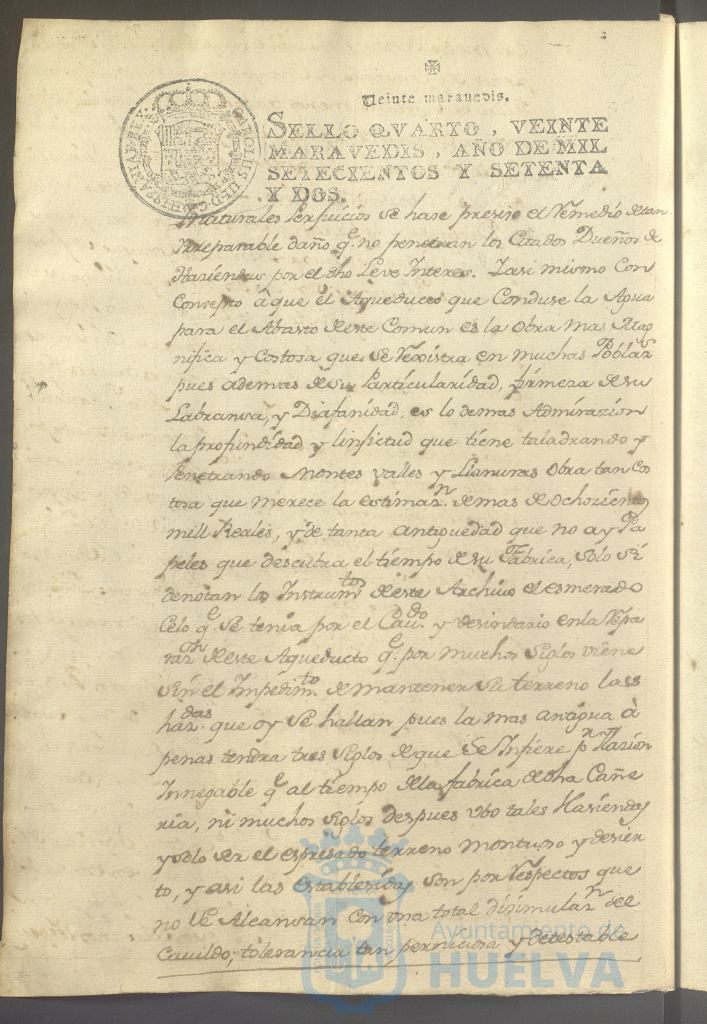 Veinte maravedis.
SELLO QVARTO, VEINTE
MARAVEDIS, AÑO DE MIL
SETECIENTOS Y SETENTA
Y DOS.
CAROLUS III D.G. HISPANIAR. REX
naturales Perjuicios se hase presiso el Remedio de tan
Irreparable daño q.e no penetran los Citados Dueños de
Haziendas por el dho Leve Interes. Y asi mismo Con
Consepto â que el Aqueducto que Conduse la Agua
para el Abasto de este Comun es la Obra mas Mag
nifica y Costosa que se Rexistra en muchas Poblaz.s
pues ademas de su Particularidad, firmeza de su
Labransa, y Diafanidad, es lo demas Admirazion
la profundidad y linfictud que tiene taladrando y
Penetrando Montes valles y Llanuras Obra tan Cos
tosa que merece la estimaz.n de mas de Ochozientos
mill Reales, y de tanta antiguedad que no ay Pa
peles que descubra el tiempo de su Fabrica, solo si
denotan los Instrum.tos de este Archivo el esmerado
Celo q.e se tenia por el Cau.do y desindario en la Repa
raz.on de este Aqueducto q.e por muchos siglos viene
sin el Impedim.to de mantener su terreno las
haz.das que oy se hallan pues la mas antigua à
penas tendra tres siglos de que se Infiere p.r Razion
Innegable q.e al tiempo de la fabrica de dha Cañe
ria, ni muchos siglos despues vbo tales Haziendas
y solo ser el espresado terreno montuno y desier
to, y asi las establesidas son por Respectos que
no se Alcansan Con vna total disimulaz.n del
Cauildo; tolerancia tan perniciosa y detestable
Ayuntamiento de
HUELVA